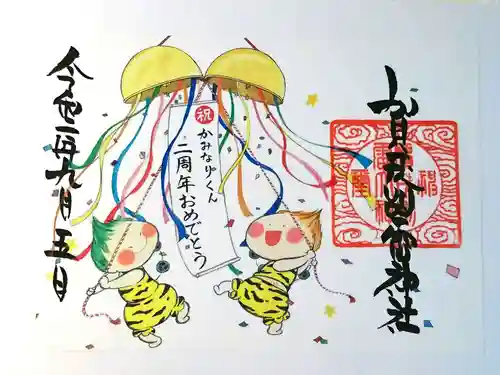 賀茂別雷神社
祝
かみなりくん
二周年おめでとう
令和二年九月五日